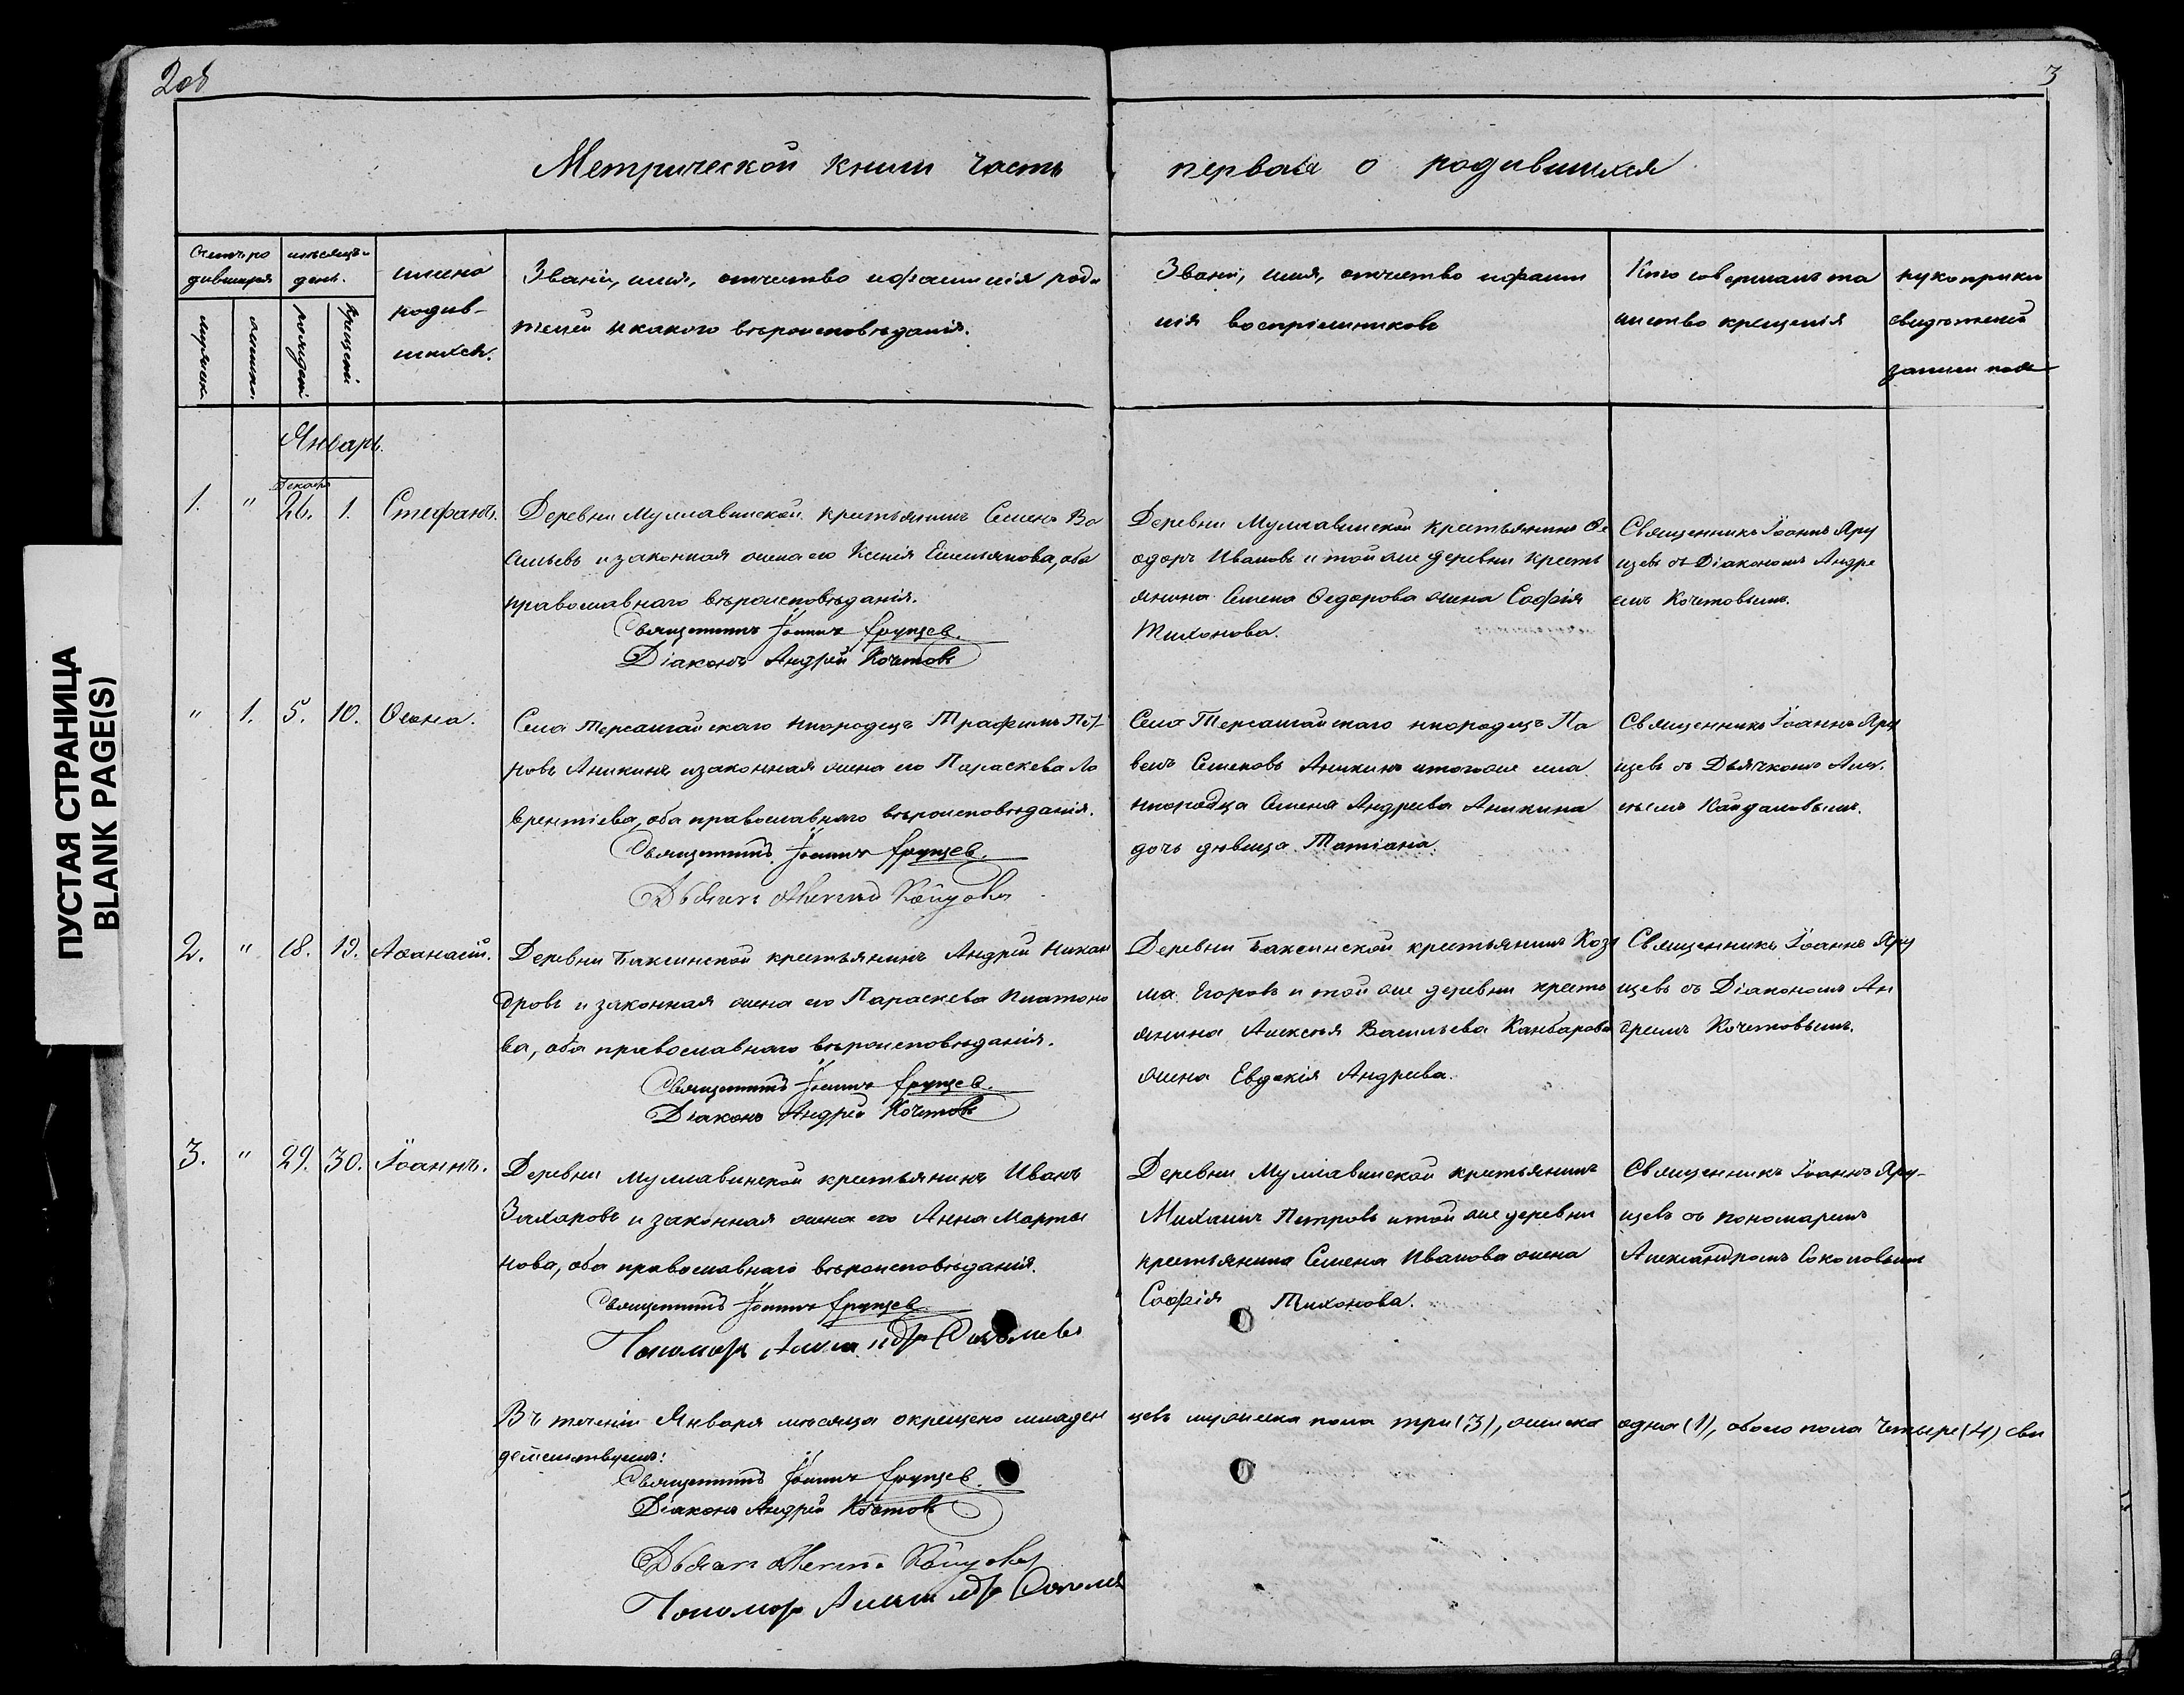 2об
3
Метрической книги часть первая о родившихся
Счетъ родившихся
мѣсяцъ и день.
имена родив-
шихся.
Званіе, имя, отчество и фамилія роди
телей и какого вѣроисповѣданія.
Званіе, имя, отчество и фами
лія воспріемниковъ
Кто совершалъ та
инство крещенія
рукоприкл
свидѣтелей
записи
мужеска
женска
рожденія
крещенія
Январь.
Декабря
1. " 26. 1. Стефанъ.
Деревни Муллавинской крестьянинъ Семенъ Ва
сильевъ и законная жена его Ксенія Емельянова, оба
православнаго вѣроисповѣданія.
Священникъ Іоаннъ Ярущев.
Діаконъ Андрей Кочетовъ
Деревни Муллавинской крестьянинъ Ѳе
одоръ Ивановъ и той же деревни кресть
янина Семена Ѳедорова жена Софія
Тихонова.
Священникъ Іоаннъ Яру
щевъ съ Діакономъ Андре
емъ Кочетовымъ.
" 1. 5. 10.
Села Терсалгайскаго инородецъ Трафимъ Пет
ровъ Аникинъ и законная жена его Параскева Ла
врентіева, оба православнаго вѣроисповѣданія.
Священникъ Іоаннъ Ярущев.
Дьячекъ Кайдалов
Село Терсалгайскаго инородецъ Па
велъ Семеновъ Аникинъ и того же села
инородца Семена Андреева Аникина
дочь дѣвица Татіана.
Священникъ Іоаннъ Яру
щевъ съ Дьячкомъ
Кайдаловымъ.
2. " 18. 19. Аѳанасій.
Деревни Баксинской крестьянинъ Андрей Никан
дровъ и законная жена его Параскева Платоно
ва, оба православнаго вѣроисповѣданія.
Священникъ Іоаннъ Ярущев.
Діаконъ Андрей Кочетовъ
Деревни Баксинской крестьянинъ Козь
ма Егоровъ и той же деревни кресть
янина Алексѣя Васильева Канбарова
жена Евдокія Андреева.
Священникъ Іоаннъ Яру
щевъ съ Діакономъ Ан
дреемъ Кочетовымъ.
3. " 29. 30. Іоаннъ.
Деревни Муллавинской крестьянинъ Иванъ
Захаровъ и законная жена его Анна Марты
нова, оба православнаго вѣроисповѣданія.
Священникъ Іоаннъ Ярущев
Пономарь Александръ Соколовъ
Деревни Муллавинской крестьянинъ
Михаилъ Петровъ и той же деревни
крестьянина Семена Иванова жена
Софія Тихонова.
Священникъ Іоаннъ Яру-
щевъ съ пономаремъ
Александромъ Соколовымъ
Въ теченіи Января мѣсяца окрещено младен цевъ мужеска пола три (3), женска одна (1), обоего пола четыре (4) сви
детельствуемъ:
Священникъ Іоаннъ Ярущев.
Діаконъ Андрей Кочетовъ
Дьячекъ Кайдалов
Пономарь Александръ Соколов
ПУСТАЯ СТРАНИЦА
BLANK PAGE(S)